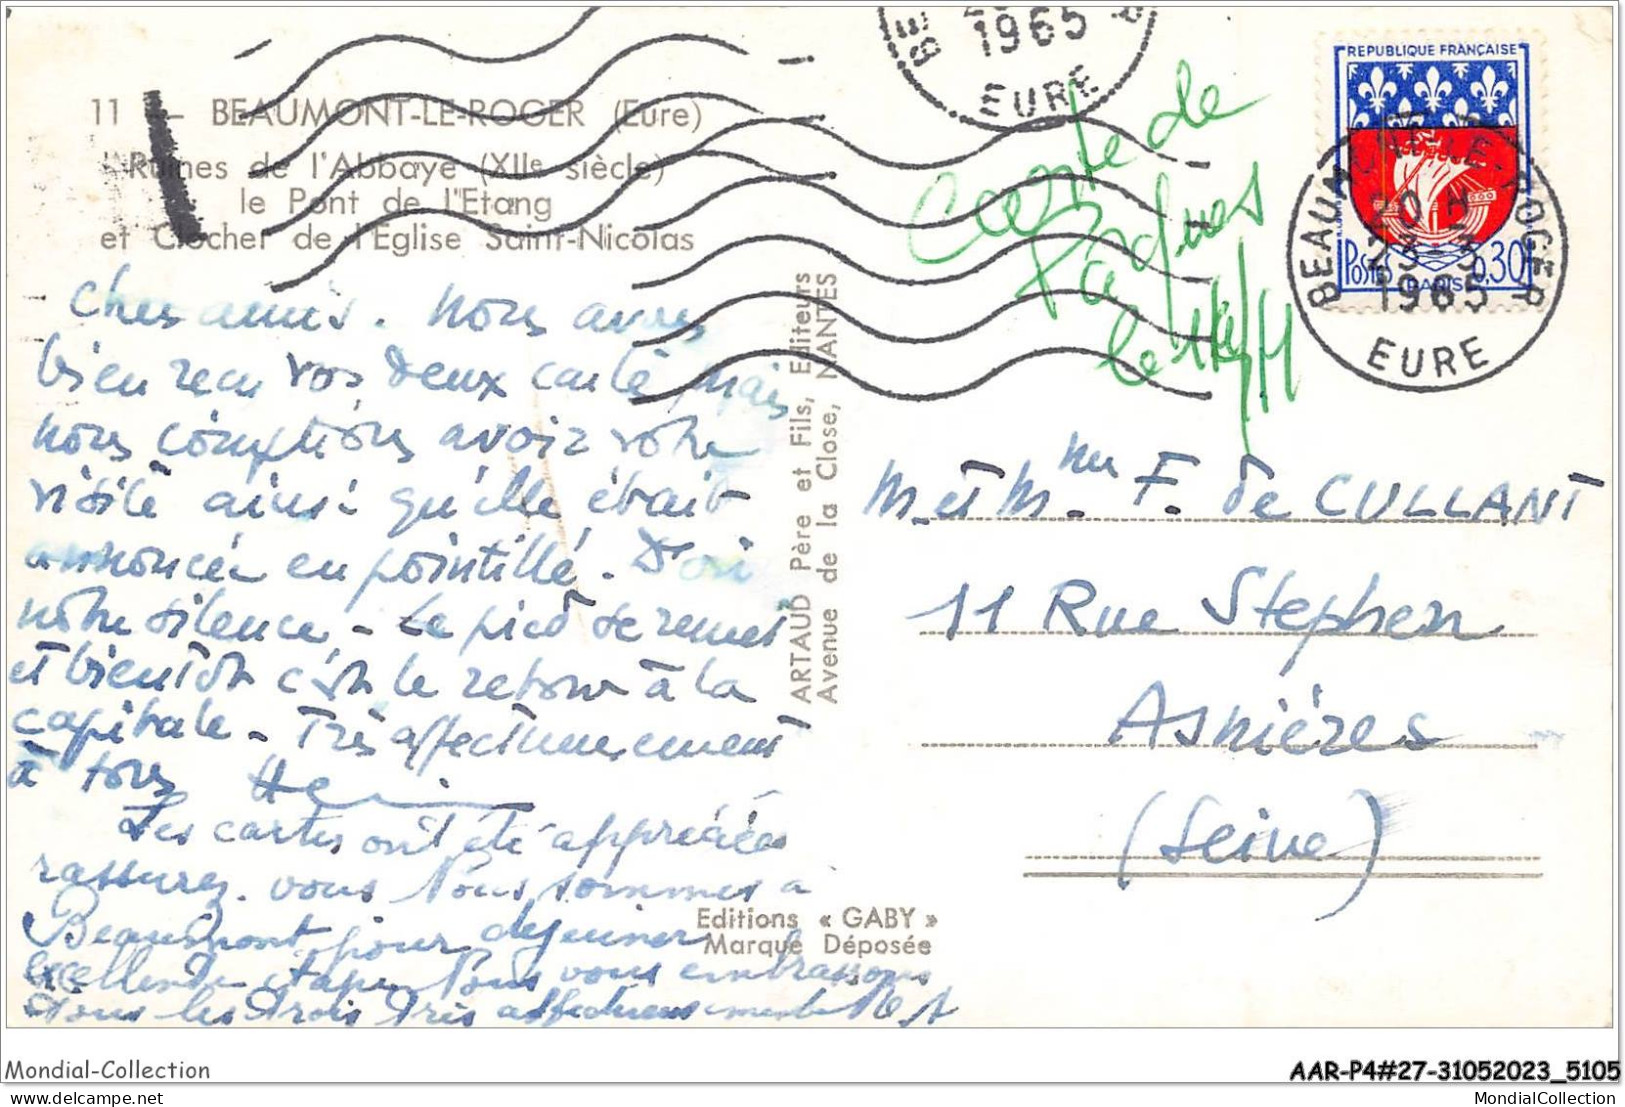 11 - BEAUMONT-LE-ROGER (Eure)
Ruines de l'Abbaye (XIIe siècle)
le Pont de l'Etang
et Clocher de l'Eglise Saint-Nicolas
Chers amis. Nous avons
bien reçu vos deux carte mais
nous comptions avoir votre
visite ainsi qu'elle était
annoncée en pointillé. D'où
notre silence. - Le pied se remet
et bientôt c'est le retour à la
capitale - Très affectueusement
à tous
Les cartes ont été appréciées
rassurez-vous Nous sommes à
Beaumont pour déjeuner
excellente étape Nous vous embrassons
tous les trois très affectueusement
ARTAUD Père et Fils, Editeurs
Avenue de la Close, NANTES
Editions « GABY »
Marque Déposée
1965
EURE
Carte de
Pâques
le
REPUBLIQUE FRANÇAISE
POSTES 0,30
PARIS
BEAUMONT-LE-ROGER
20 H
23-3
1965
EURE
M. et Mme F. de CULLANT
11 Rue Stephen
Asnières
(Seine)
Mondial-Collection
AAR-P4#27-31052023_5105
MondialCollection